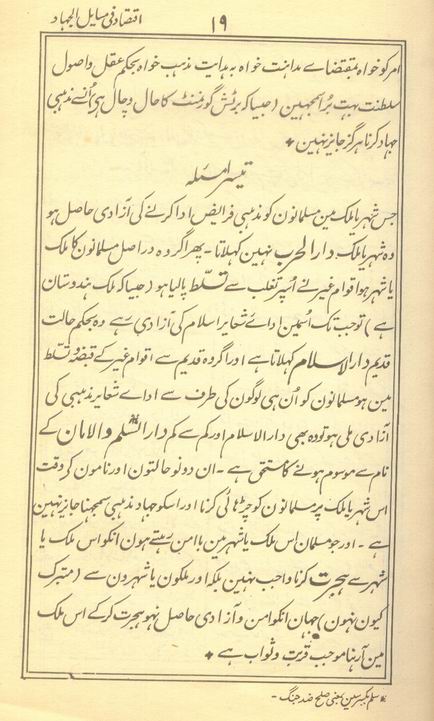 ۱۹ اقتصاد فی مسایل الجہاد
امر کو خواہ بمقتضاے مداہنت خواہ بہدایت مذہب خواہ بحکم عقل و اصول
سلطنت بہت بُرا سمجہین (جیسا کہ برٹش گورنمنٹ کا حال و چال ہی) اُنسے مذہبی
جہاد کرنا ہرگز جایز نہین ٭
تیسرا مسئلہ
جس شہر یا ملک مین مسلمانون کو مذہبی فرائض ادا کرنے کی آزادی حاصل ہو
وہ شہر یا ملک دار الحرب نہین کہلاتا - پھر اگر وہ دراصل مسلمانون کا ملک
یا شہر ہو اقوام غیر نے اُسپر تغلب سے تسلّط پا لیا ہو (جیسا کہ ملک ہندوستان
ہے) تو جب تک اسمین اداے شعایر اسلام کی آزادی ہے وہ بحکم حالت
قدیم دار الاسلام کہلاتا ہے اور اگر وہ قدیم سے اقوام غیر کے قبضہ و تسلّط
مین ہو مسلمانون کو اُن ہی لوگون کی طرف سے اداے شعایر مذہبی کی
آزادی ملی ہو تو وہ بھی دار الاسلام اور کم سے کم دار السّلم٭ والامان کے
نام سے موسوم ہونے کا مستحق ہے - ان دونو حالتون اور نامون کے وقت
اس شہر یا ملک پر مسلمانون کو چڑھائی کرنا اور اسکو جہاد مذہبی سمجہنا جایز نہین
ہے - اور جو مسلمان اس ملک یا شہر مین باامن رہتے ہون انکو اس ملک یا
شہر سے ہجرت کرنا واجب نہین بلکہ اور ملکون یا شہرون سے (متبرک
کیون نہون) جہان انکو امن و آزادی حاصل نہو ہجرت کرکے اس ملک
مین آرہنا موجب قربت و ثواب ہے ٭
٭ سلم بکسر سین بمعنی صلح ضد جنگ -